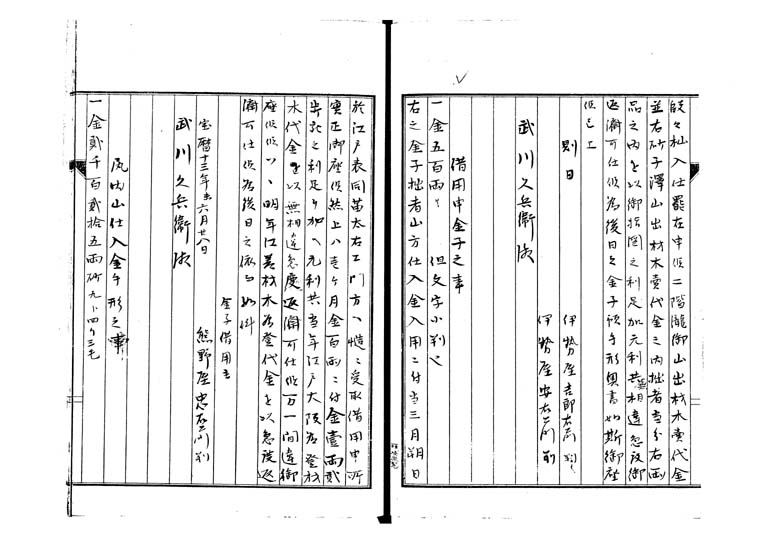 段々杣入仕罷在申候二階瀧御山出材木売代金
並右砂子澤山出材木売代金之内拙者当分右両
品之内を以御指図之利足加元利共無相違急度御
返済可仕候為後日之金子預手形奥書如斯御座
候已上
則日
伊勢屋吉郎右衛門 判
伊勢屋安右衛門 判
武川久兵衛殿
借用申金子之事
一金五百両ハ 但文字小判也
右之金子拙者山方仕入金入用ニ付当三月朔日
於江戸表同苗太右衛門方ゟ慥ニ受取借用申所
実正御座候然上ハ壱ヶ月金百両ニ付金壱両弐
歩之利足ヲ加ヘ元利共当年江戸大阪為登材
木代金を以無相違急度返済可仕候万一間違御
座候ハヽ明年江差材木為登代金を以急度返
済可仕候為後日之依而如件
金子借用主
宝暦十三年未六月廿八日
熊野屋忠右衛門 判
武川久兵衛殿
山仕入金手形之事
一金弐千百弐拾五両